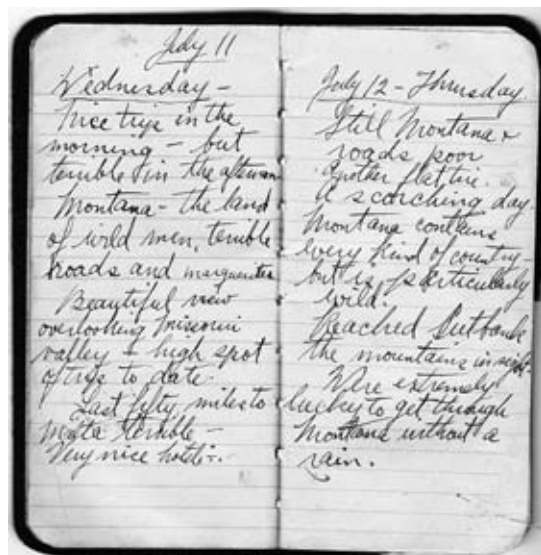 July 11
Wednesday –
Nice trip in the
morning – but
terrible in the afternoon
Montana – the land
of wild men, terrible
roads and marguerites
Beautiful view
overlooking Missouri
valley – high spot
of trip to date.
Last fifty miles to
Malta terrible –
Very nice hotel
July 12 – Thursday
Still Montana &
roads poor
Another flat tire.
A scorching day
Montana contains
every kind of country –
but is particularly
wild.
Reached Cutbank
the mountains in sight.
Were extremely
lucky to get through
Montana without a
rain.